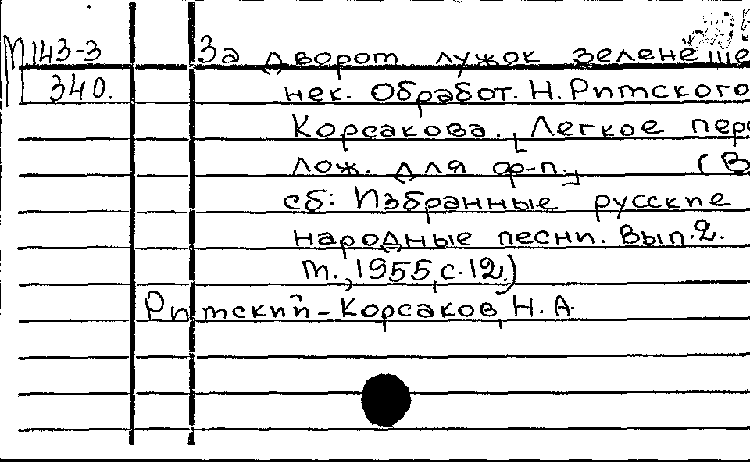 М 143-3 За дворот лужок зеленёше
340. нек. Обработ. Н. Римского
Корсакова. [Легкое пер
лож. для ф-п.] (В
сб: Избранные русские
народные песни. Вып. 2.
М., 1955, с. 12)
Римский-Корсаков, Н. А.